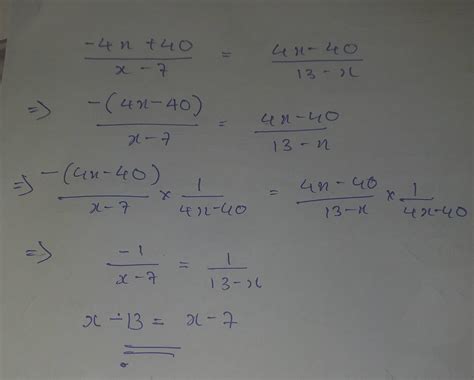 (-4x + 40)/(x - 7) = (4x - 40)/(13 - x)
=> (-(4x - 40))/(x - 7) = (4x - 40)/(13 - x)
=> (-(4x - 40))/(x - 7) × 1/(4x - 40) = (4x - 40)/(13 - x) × 1/(4x - 40)
=> (-1)/(x - 7) = 1/(13 - x)
x - 13 = x - 7